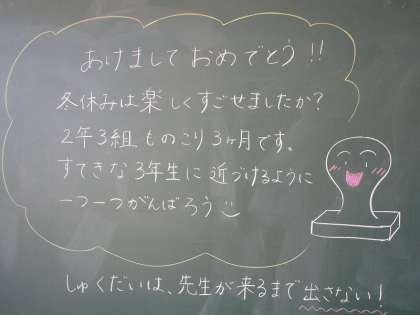 あけまして おめでとう!!
冬休みは楽しくすごせましたか?
2年3組 ものこり3ヶ月です。
すてきな3年生に 近づけるように
一つ一つがんばろう
しゅくだいは、先生が来るまで出さない!